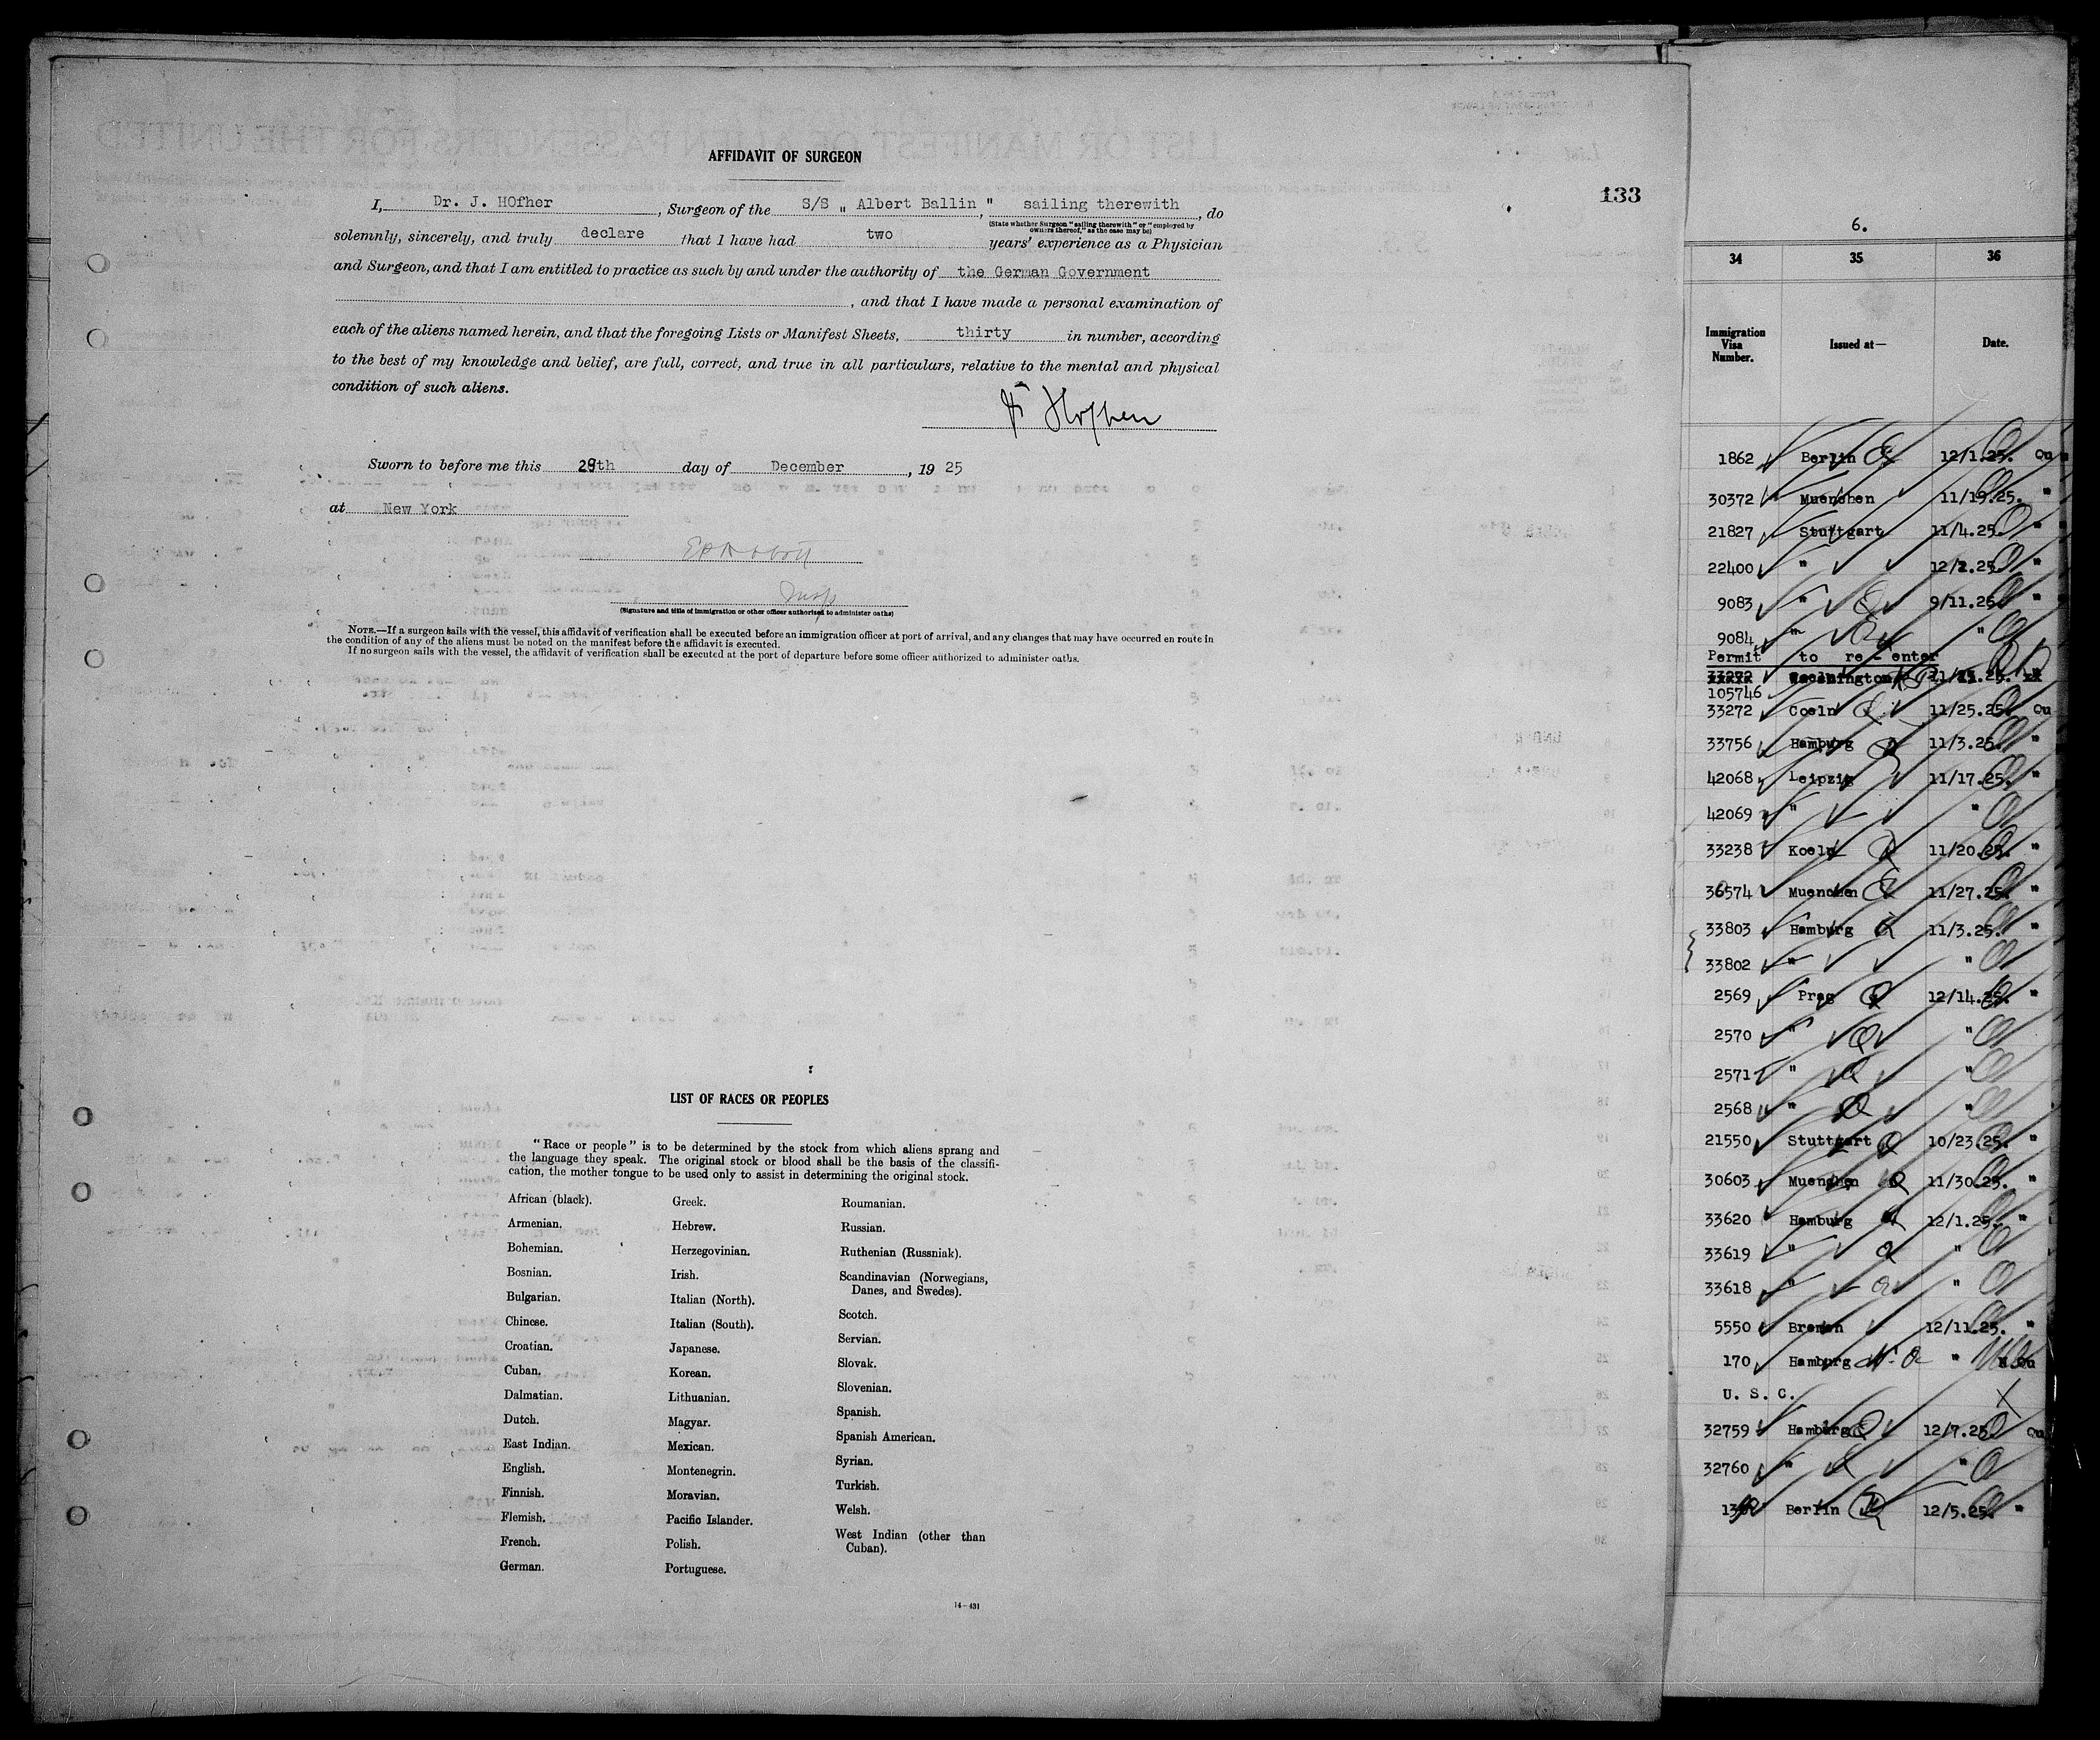 AFFIDAVIT OF SURGEON
133
I, Dr. J. HOfher, Surgeon of the S/S " Albert Ballin ", sailing therewith, do
(State whether Surgeon "sailing therewith" or "employed by
owners thereof," as the case may be)
solemnly, sincerely, and truly declare that I have had two years' experience as a Physician
and Surgeon, and that I am entitled to practice as such by and under the authority of the German Government
, and that I have made a personal examination of
each of the aliens named herein, and that the foregoing Lists or Manifest Sheets, thirty in number, according
to the best of my knowledge and belief, are full, correct, and true in all particulars, relative to the mental and physical
condition of such aliens.
Sworn to before me this 29th day of December, 19 25
at New York
(Signature and title of immigration or other officer authorized to administer oaths)
NOTE.—If a surgeon sails with the vessel, this affidavit of verification shall be executed before an immigration officer at port of arrival, and any changes that may have occurred en route in
the condition of any of the aliens must be noted on the manifest before the affidavit is executed.
If no surgeon sails with the vessel, the affidavit of verification shall be executed at the port of departure before some officer authorized to administer oaths.
LIST OF RACES OR PEOPLES
"Race or people" is to be determined by the stock from which aliens sprang and
the language they speak. The original stock or blood shall be the basis of the classifi-
cation, the mother tongue to be used only to assist in determining the original stock.
African (black).
Armenian.
Bohemian.
Bosnian.
Bulgarian.
Chinese.
Croatian.
Cuban.
Dalmatian.
Dutch.
East Indian.
English.
Finnish.
Flemish.
French.
German.
Greek.
Hebrew.
Herzegovinian.
Irish.
Italian (North).
Italian (South).
Japanese.
Korean.
Lithuanian.
Magyar.
Mexican.
Montenegrin.
Moravian.
Pacific Islander.
Polish.
Portuguese.
Roumanian.
Russian.
Ruthenian (Russniak).
Scandinavian (Norwegians,
Danes, and Swedes).
Scotch.
Servian.
Slovak.
Slovenian.
Spanish.
Spanish American.
Syrian.
Turkish.
Welsh.
West Indian (other than
Cuban).
14—431
6.
34 35 36
Immigration
Visa
Number.
Issued at—
Date.
1862 Berlin 12/1.25. Qu
30372 Muenchen 11/19.25. "
21827 Stuttgart 11/4.25. "
22400 " 12/2.25. "
9083 " 9/11.25. "
9084 " "
Permit to re-enter
Washington
105746
33272 Coeln 11/25.25. Qu
33756 Hamburg 11/3.25. "
42068 Leipzig 11/17.25. "
42069 " "
33238 Koeln 11/20.25. "
36574 Muenchen 11/27.25. "
33803 Hamburg 11/3.25. "
33802 " "
2569 Prag 12/14.25. "
2570 " "
2571 " "
2568 " "
21550 Stuttgart 10/23.25. "
30603 Muenchen 11/30.25. "
33620 Hamburg 12/1.25. "
33619 " "
33618 " "
5550 Bremen 12/11.25. "
170 Hamburg "
U. S. C.
32759 Hamburg 12/7.25. Qu
32760 " "
Berlin 12/5.25. "